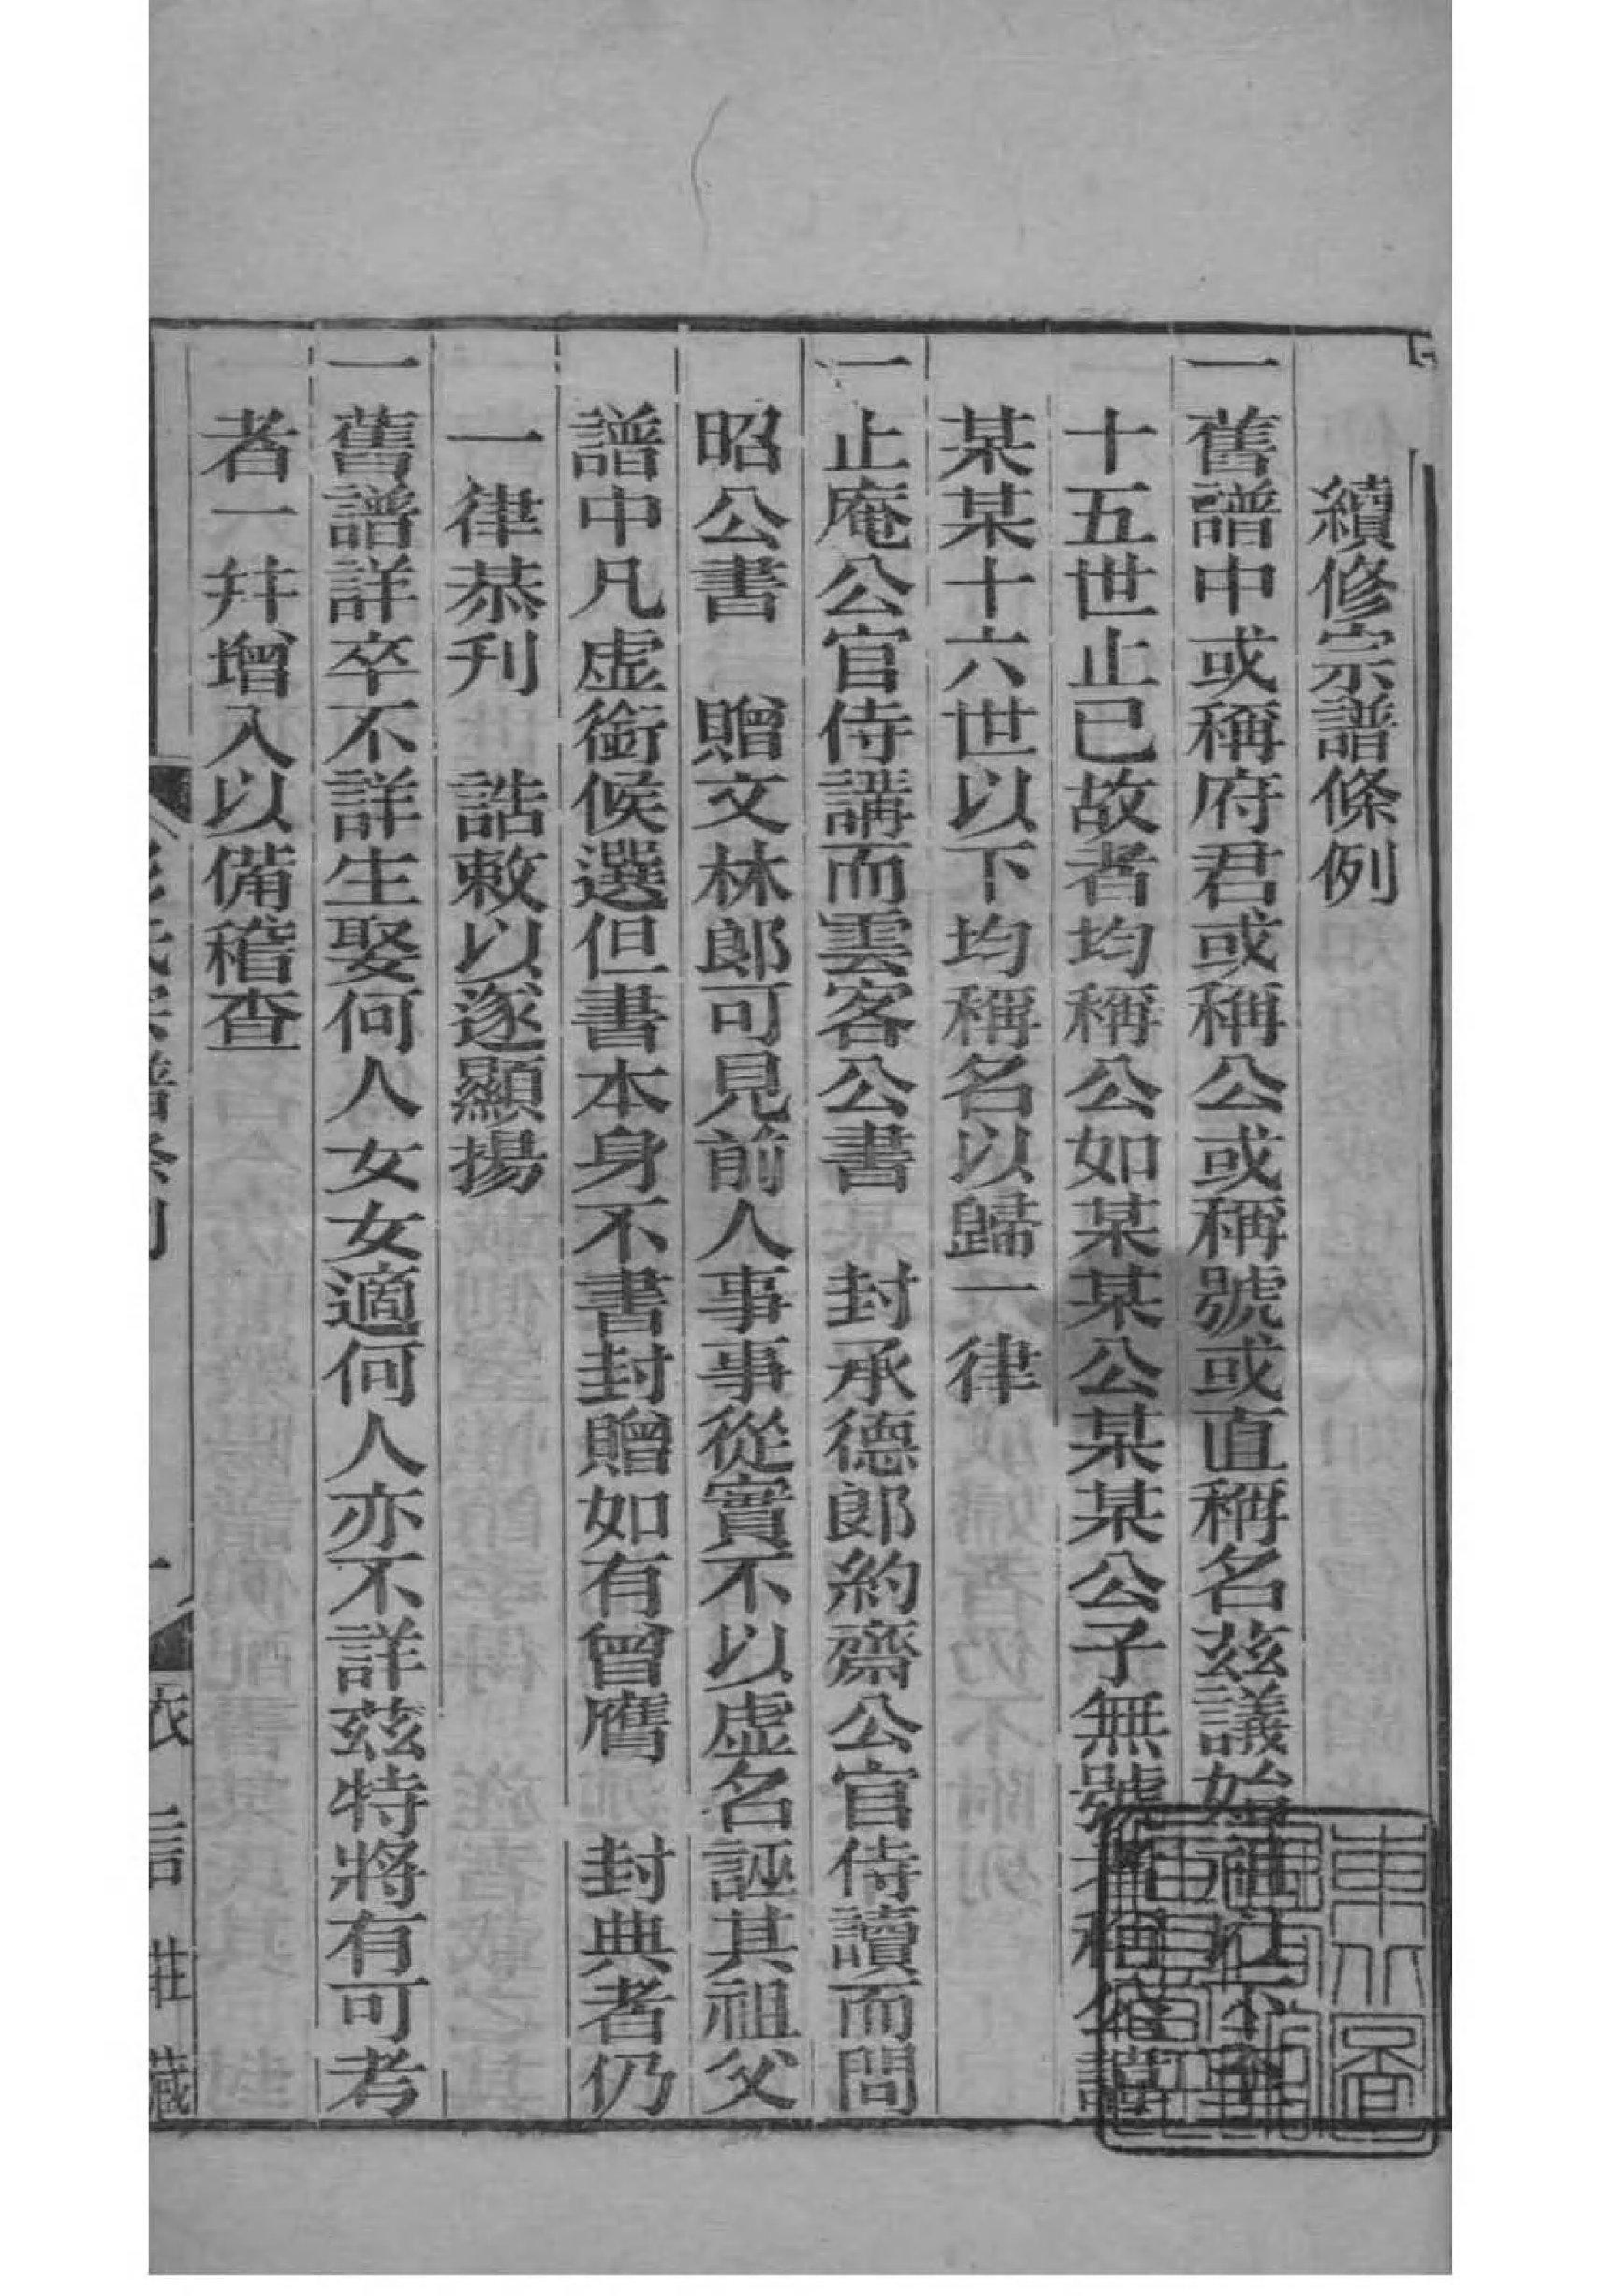 續修宗譜條例
一舊譜中或稱府君或稱公或稱號或直稱名茲議始祖以下至
十五世止已故者均稱公如某某公某某公子無號者稱公諱
某某十六世以下均稱名以歸一律
一止庵公官侍講而雲客公書　封承德郎約齋公官侍讀而問
昭公書　贈文林郎可見前人事事從實不以虛名誣其祖父
譜中凡虛銜候選但書本身不書封贈如有曾膺　封典者仍
一律恭刋　誥敕以遂顯揚
一舊譜詳卒不詳生娶何人女女適何人亦不詳茲特將有可考
者一并增入以備稽查